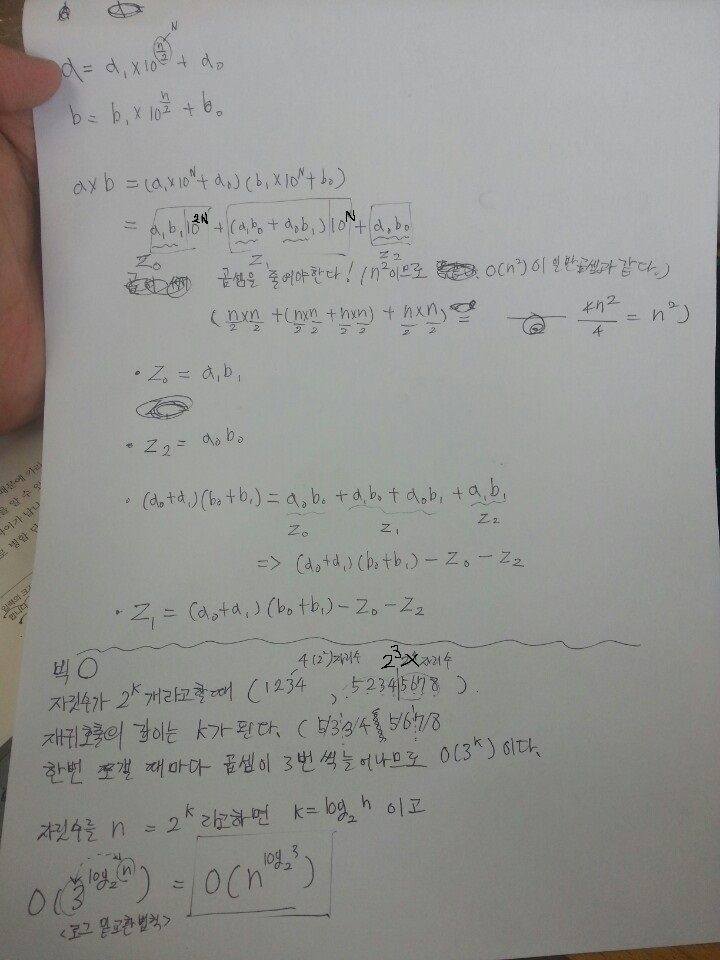 N
a = a₁×10^(n/2) + a₀
b = b₁×10^(n/2) + b₀
a×b = (a₁×10^N + a₀)(b₁×10^N + b₀)
= a₁b₁10^2N + (a₁b₀ + a₀b₁)10^N + a₀b₀
Z₀ Z₁ Z₂
곱셈을 줄여야한다! (n²이므로 O(n²)이 일반곱셈과 같다.)
(n/2×n/2 + (n/2×n/2 + n/2×n/2) + n/2×n/2 = 4n²/4 = n²)
• Z₀ = a₁b₁
• Z₂ = a₀b₀
• (a₀+a₁)(b₀+b₁) = a₀b₀ + a₁b₀ + a₀b₁ + a₁b₁
Z₀ Z₁ Z₂
=> (a₀+a₁)(b₀+b₁) - Z₀ - Z₂
• Z₁ = (a₀+a₁)(b₀+b₁) - Z₀ - Z₂
빅 O
4(2²)자리수 2³ 자리수
자릿수가 2^k개라고할때 (1234, 52345678).
재귀호출의 깊이는 k가 된다. (5/3/3/4 5/6/7/8
한번 쪼갤 때마다 곱셈이 3번씩 늘어나므로 O(3^k)이다.
자릿수를 n = 2^k 라고하면 k = log₂n 이고
O(3^(log₂n)) = O(n^(log₂3))
<로그 밑교환법칙>